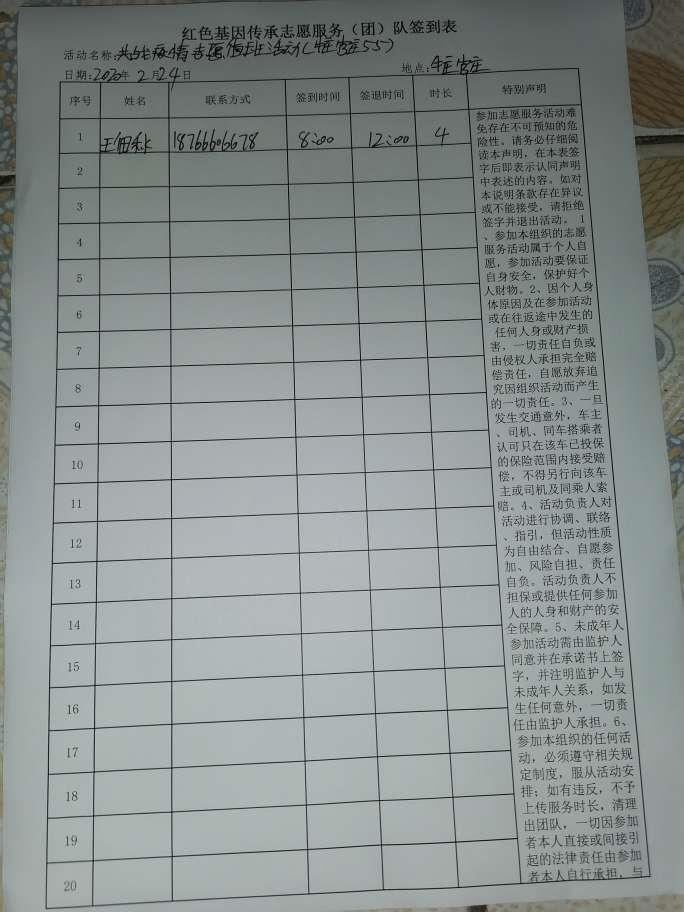 红色基因传承志愿服务（团）队签到表
活动名称：共战疫情志愿值班活动(
日期：2020年 2月24日 地点：
序号 姓名 联系方式 签到时间 签退时间 时长 特别声明
1 18766606678 8:00 12:00 4
2
3
4
5
6
7
8
9
10
11
12
13
14
15
16
17
18
19
20
参加志愿服务活动难
免存在不可预知的危
险性。请务必仔细阅
读本声明，在本表签
字后即表示认同声明
中表述的内容。如对
本说明条款存在异议
或不能接受，请拒绝
签字并退出活动。 1
、参加本组织的志愿
服务活动属于个人自
愿，参加活动要保证
自身安全，保护好个
人财物。2、因个人身
体原因及在参加活动
或在往返途中发生的
任何人身或财产损
害，一切责任自负或
由侵权人承担完全赔
偿责任，自愿放弃追
究因组织活动而产生
的一切责任。3、一旦
发生交通意外，车主
、司机、同车搭乘者
认可只在该车已投保
的保险范围内接受赔
偿，不得另行向该车
主或司机及同乘人索
赔。4、活动负责人对
活动进行协调、联络
、指引，但活动性质
为自由结合、自愿参
加、风险自担、责任
自负。活动负责人不
担保或提供任何参加
人的人身和财产的安
全保障。5、未成年人
参加活动需由监护人
同意并在承诺书上签
字，并注明监护人与
未成年人关系，如发
生任何意外，一切责
任由监护人承担。6、
参加本组织的任何活
动，必须遵守相关规
定制度，服从活动安
排；如有违反，不予
上传服务时长，清理
出团队，一切因参加
者本人直接或间接引
起的法律责任由参加
者本人自行承担，与